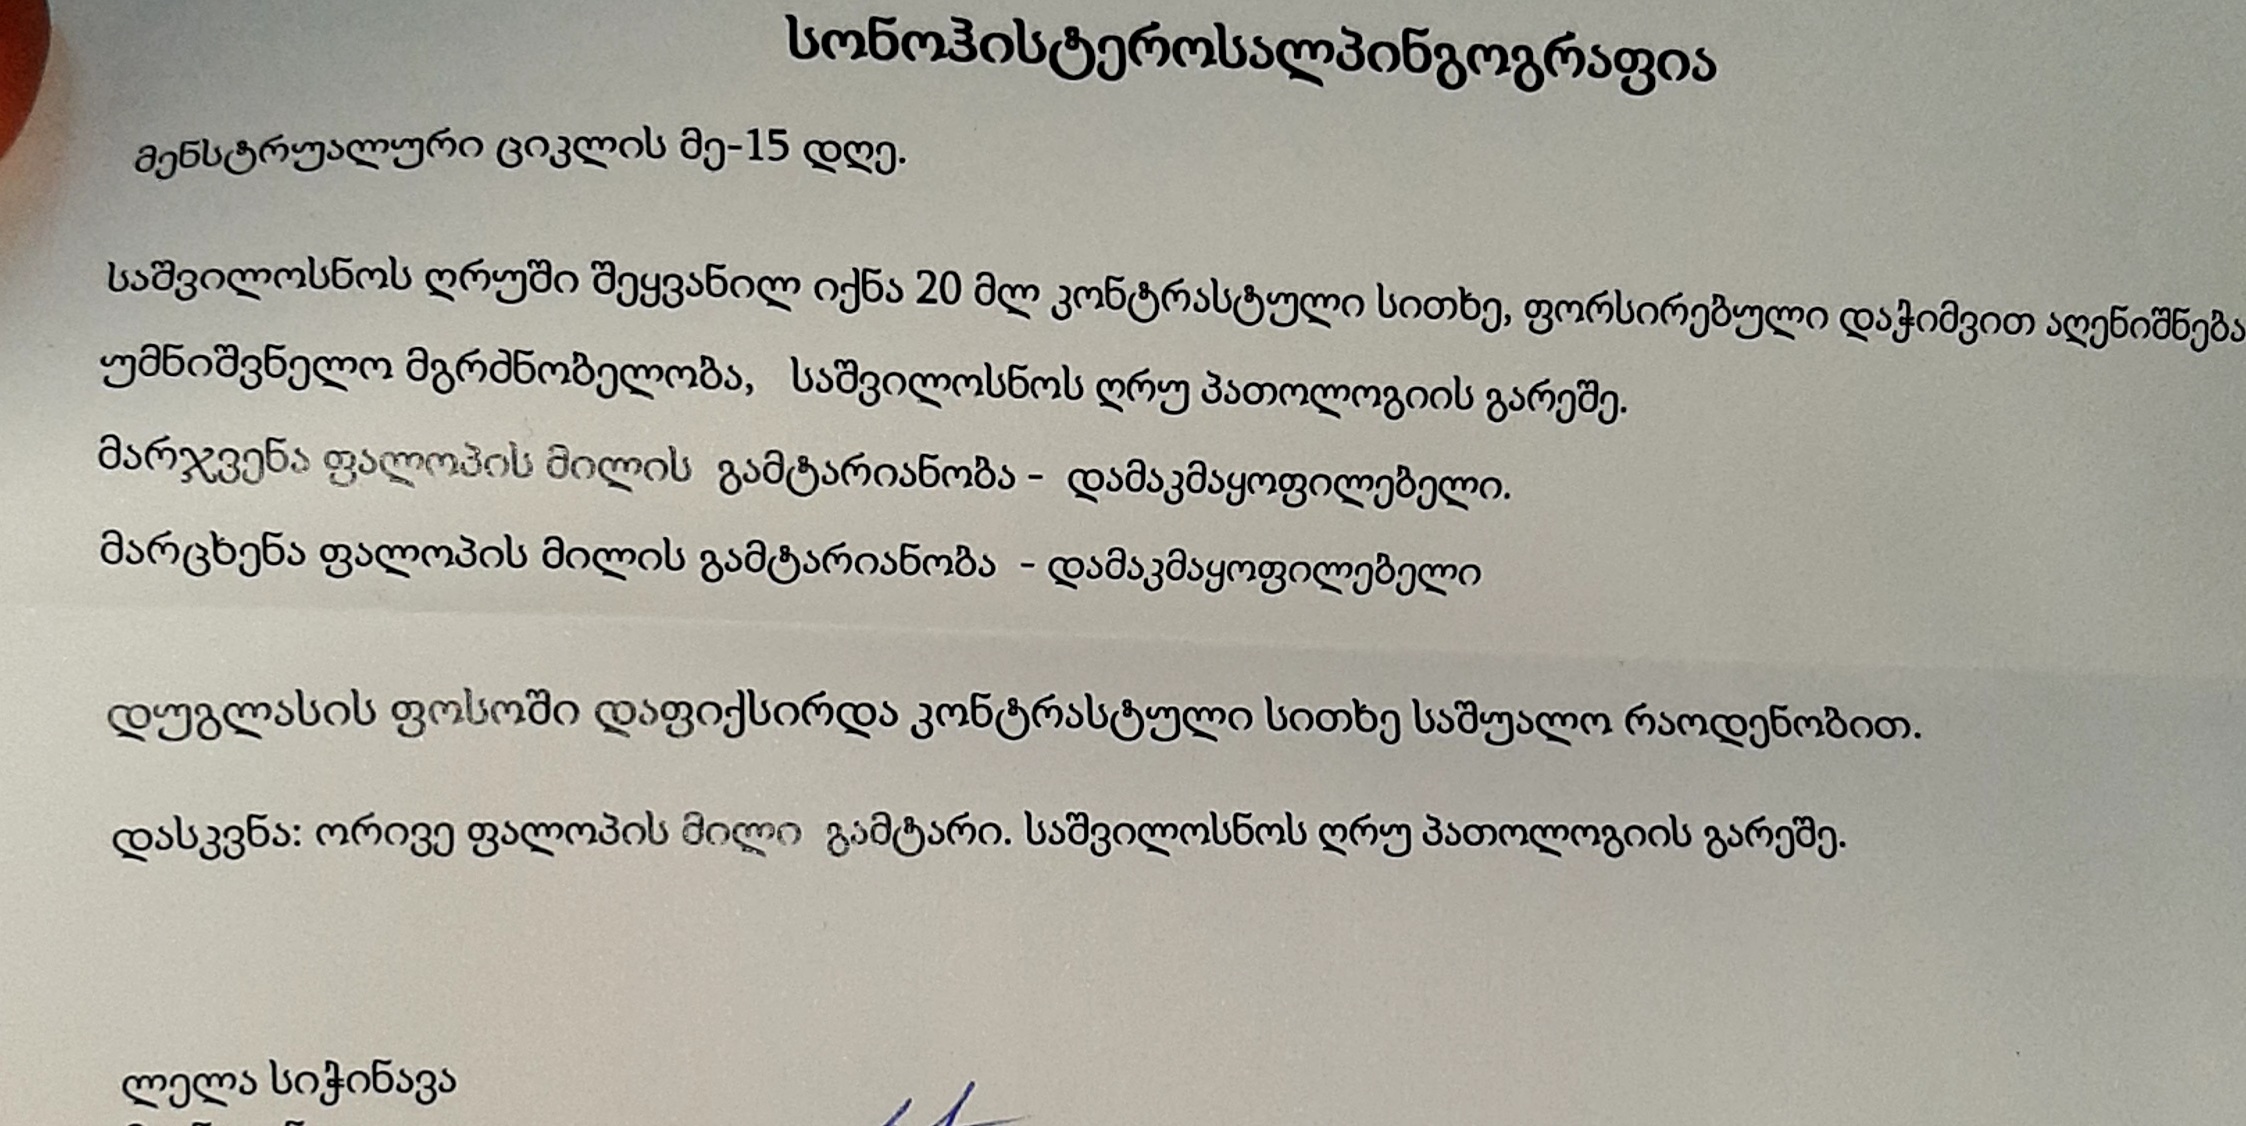 სონოჰისტეროსალპინგოგრაფია
მენსტრუალური ციკლის მე-15 დღე.
საშვილოსნოს ღრუში შეყვანილ იქნა 20 მლ კონტრასტული სითხე, ფორსირებული დაჭიმვით აღენიშნება
უმნიშვნელო მგრძნობელობა, საშვილოსნოს ღრუ პათოლოგიის გარეშე.
მარჯვენა ფალოპის მილის გამტარიანობა - დამაკმაყოფილებელი.
მარცხენა ფალოპის მილის გამტარიანობა - დამაკმაყოფილებელი
დუგლასის ფოსოში დაფიქსირდა კონტრასტული სითხე საშუალო რაოდენობით.
დასკვნა: ორივე ფალოპის მილი გამტარი. საშვილოსნოს ღრუ პათოლოგიის გარეშე.
ლელა სიჭინავა